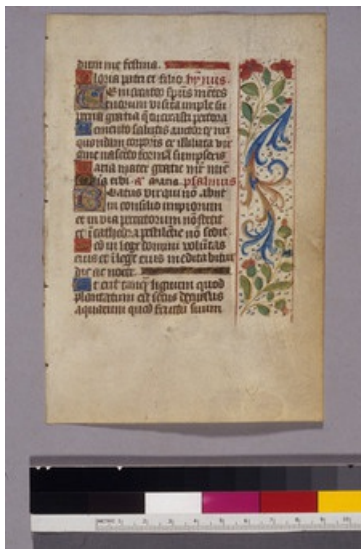 dium me festina.
Gloria patri et filio. hymnus.
Veni creator spiritus mentes
tuorum visita imple su
perna gratia que tu creasti pectora
Memento salutis auctor
quondam corporis ex illibata vir
gine nascendo formam sumpseris
Maria mater gratie
psalmus
Beatus vir qui non abiit
in consilio impiorum
et in via peccatorum non stetit
et in cathedra pestilentie non sedit
Sed in lege domini voluntas
eius et in lege eius meditabitur
die ac nocte.
Et erit tanquam lignum quod
plantatum est secus decursus
aquarum quod fructum suum